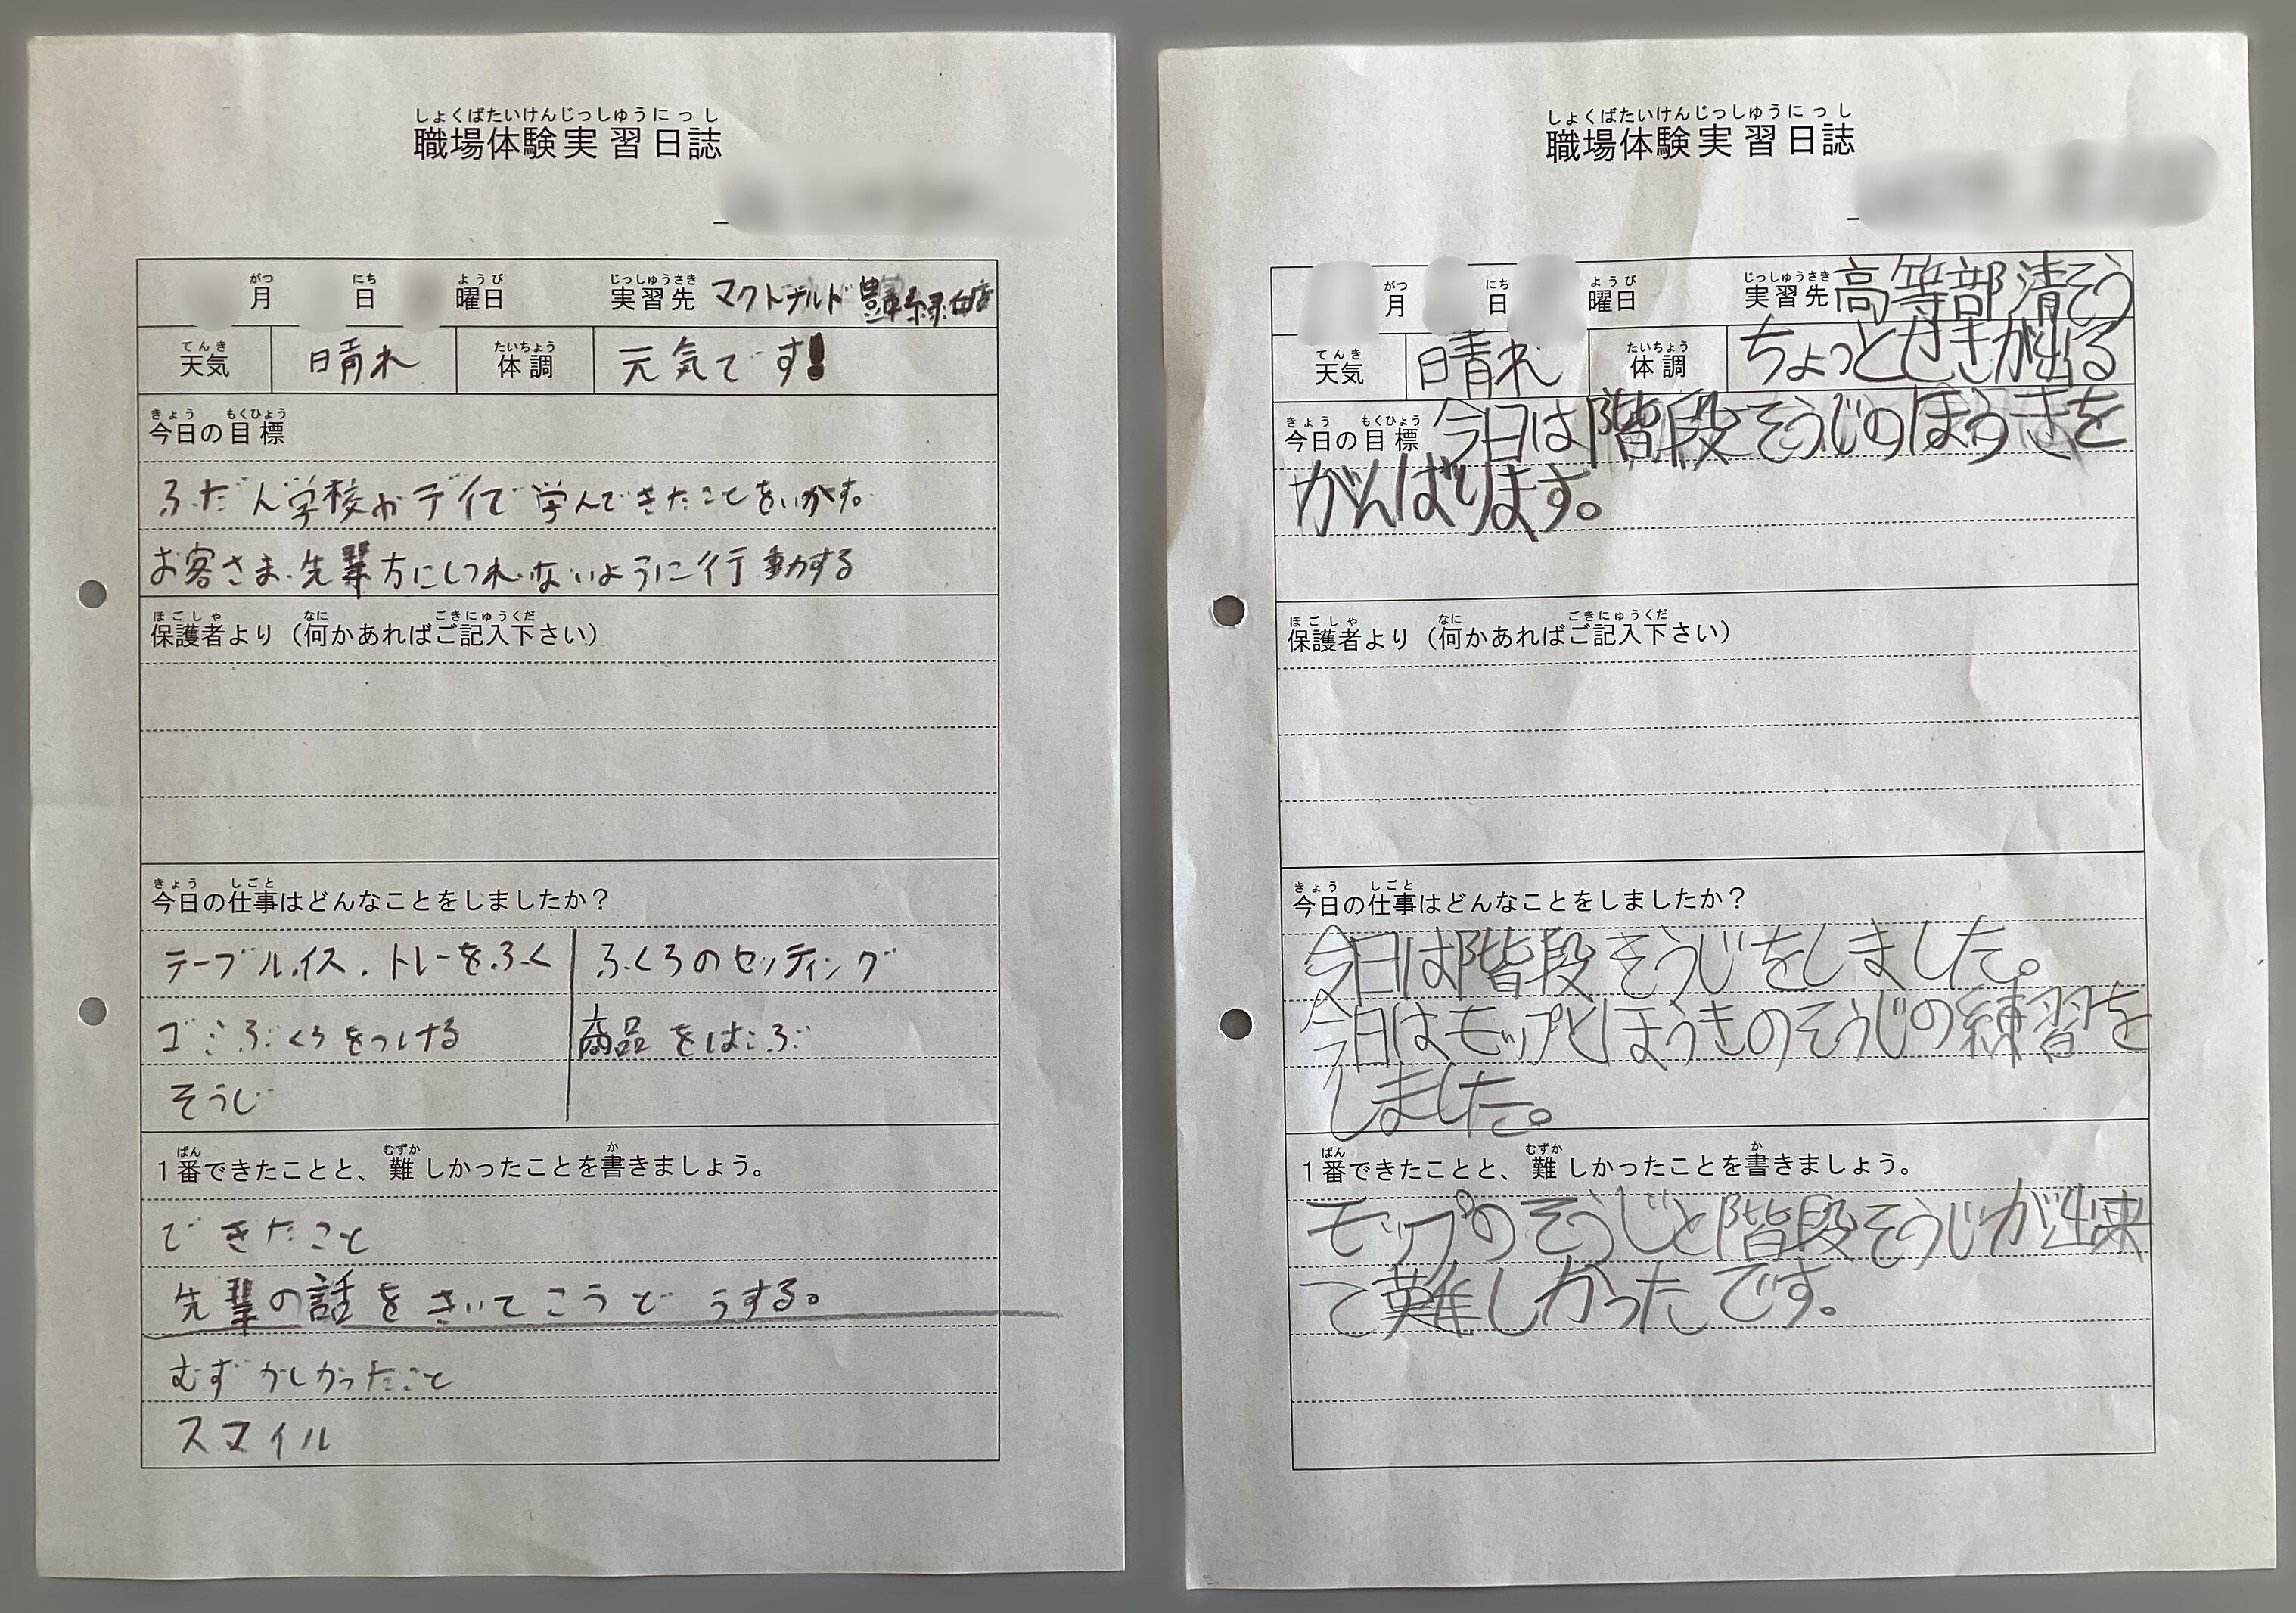 しょくばたいけんじっしゅうにっし
職場体験実習日誌
がつ にち ようび じっしゅうさき
月 日 曜日 実習先 マクドナルド 豊緑店
てんき たいちょう
天気 晴れ 体調 元気です!
きょう もくひょう
今日の目標
ふだん学校やデイで学んできたことをいかす。
お客さま・先輩方にしつれいないように行動する
ほごしゃ なに ごきにゅうくだ
保護者より(何かあればご記入下さい)
きょう しごと
今日の仕事はどんなことをしましたか?
テーブル.イス.トレーをふく ふくろのセッティング
ゴミぶくろをつける 商品をはこぶ
そうじ
ばん むずか か
1番できたことと、難しかったことを書きましょう。
できたこと
先輩の話をきいてこうどうする。
むずかしかったこと
スマイル
しょくばたいけんじっしゅうにっし
職場体験実習日誌
がつ にち ようび じっしゅうさき
月 日 曜日 実習先 高等部清そう
てんき たいちょう
天気 晴れ 体調 ちょっとせきが出る
きょう もくひょう
今日の目標 今日は階段そうじのほうきを
がんばります。
ほごしゃ なに ごきにゅうくだ
保護者より(何かあればご記入下さい)
きょう しごと
今日の仕事はどんなことをしましたか?
今日は階段そうじをしました。
今日はモップとほうきのそうじの練習を
しました。
ばん むずか か
1番できたことと、難しかったことを書きましょう。
モップのそうじと階段そうじが出来
て難しかったです。